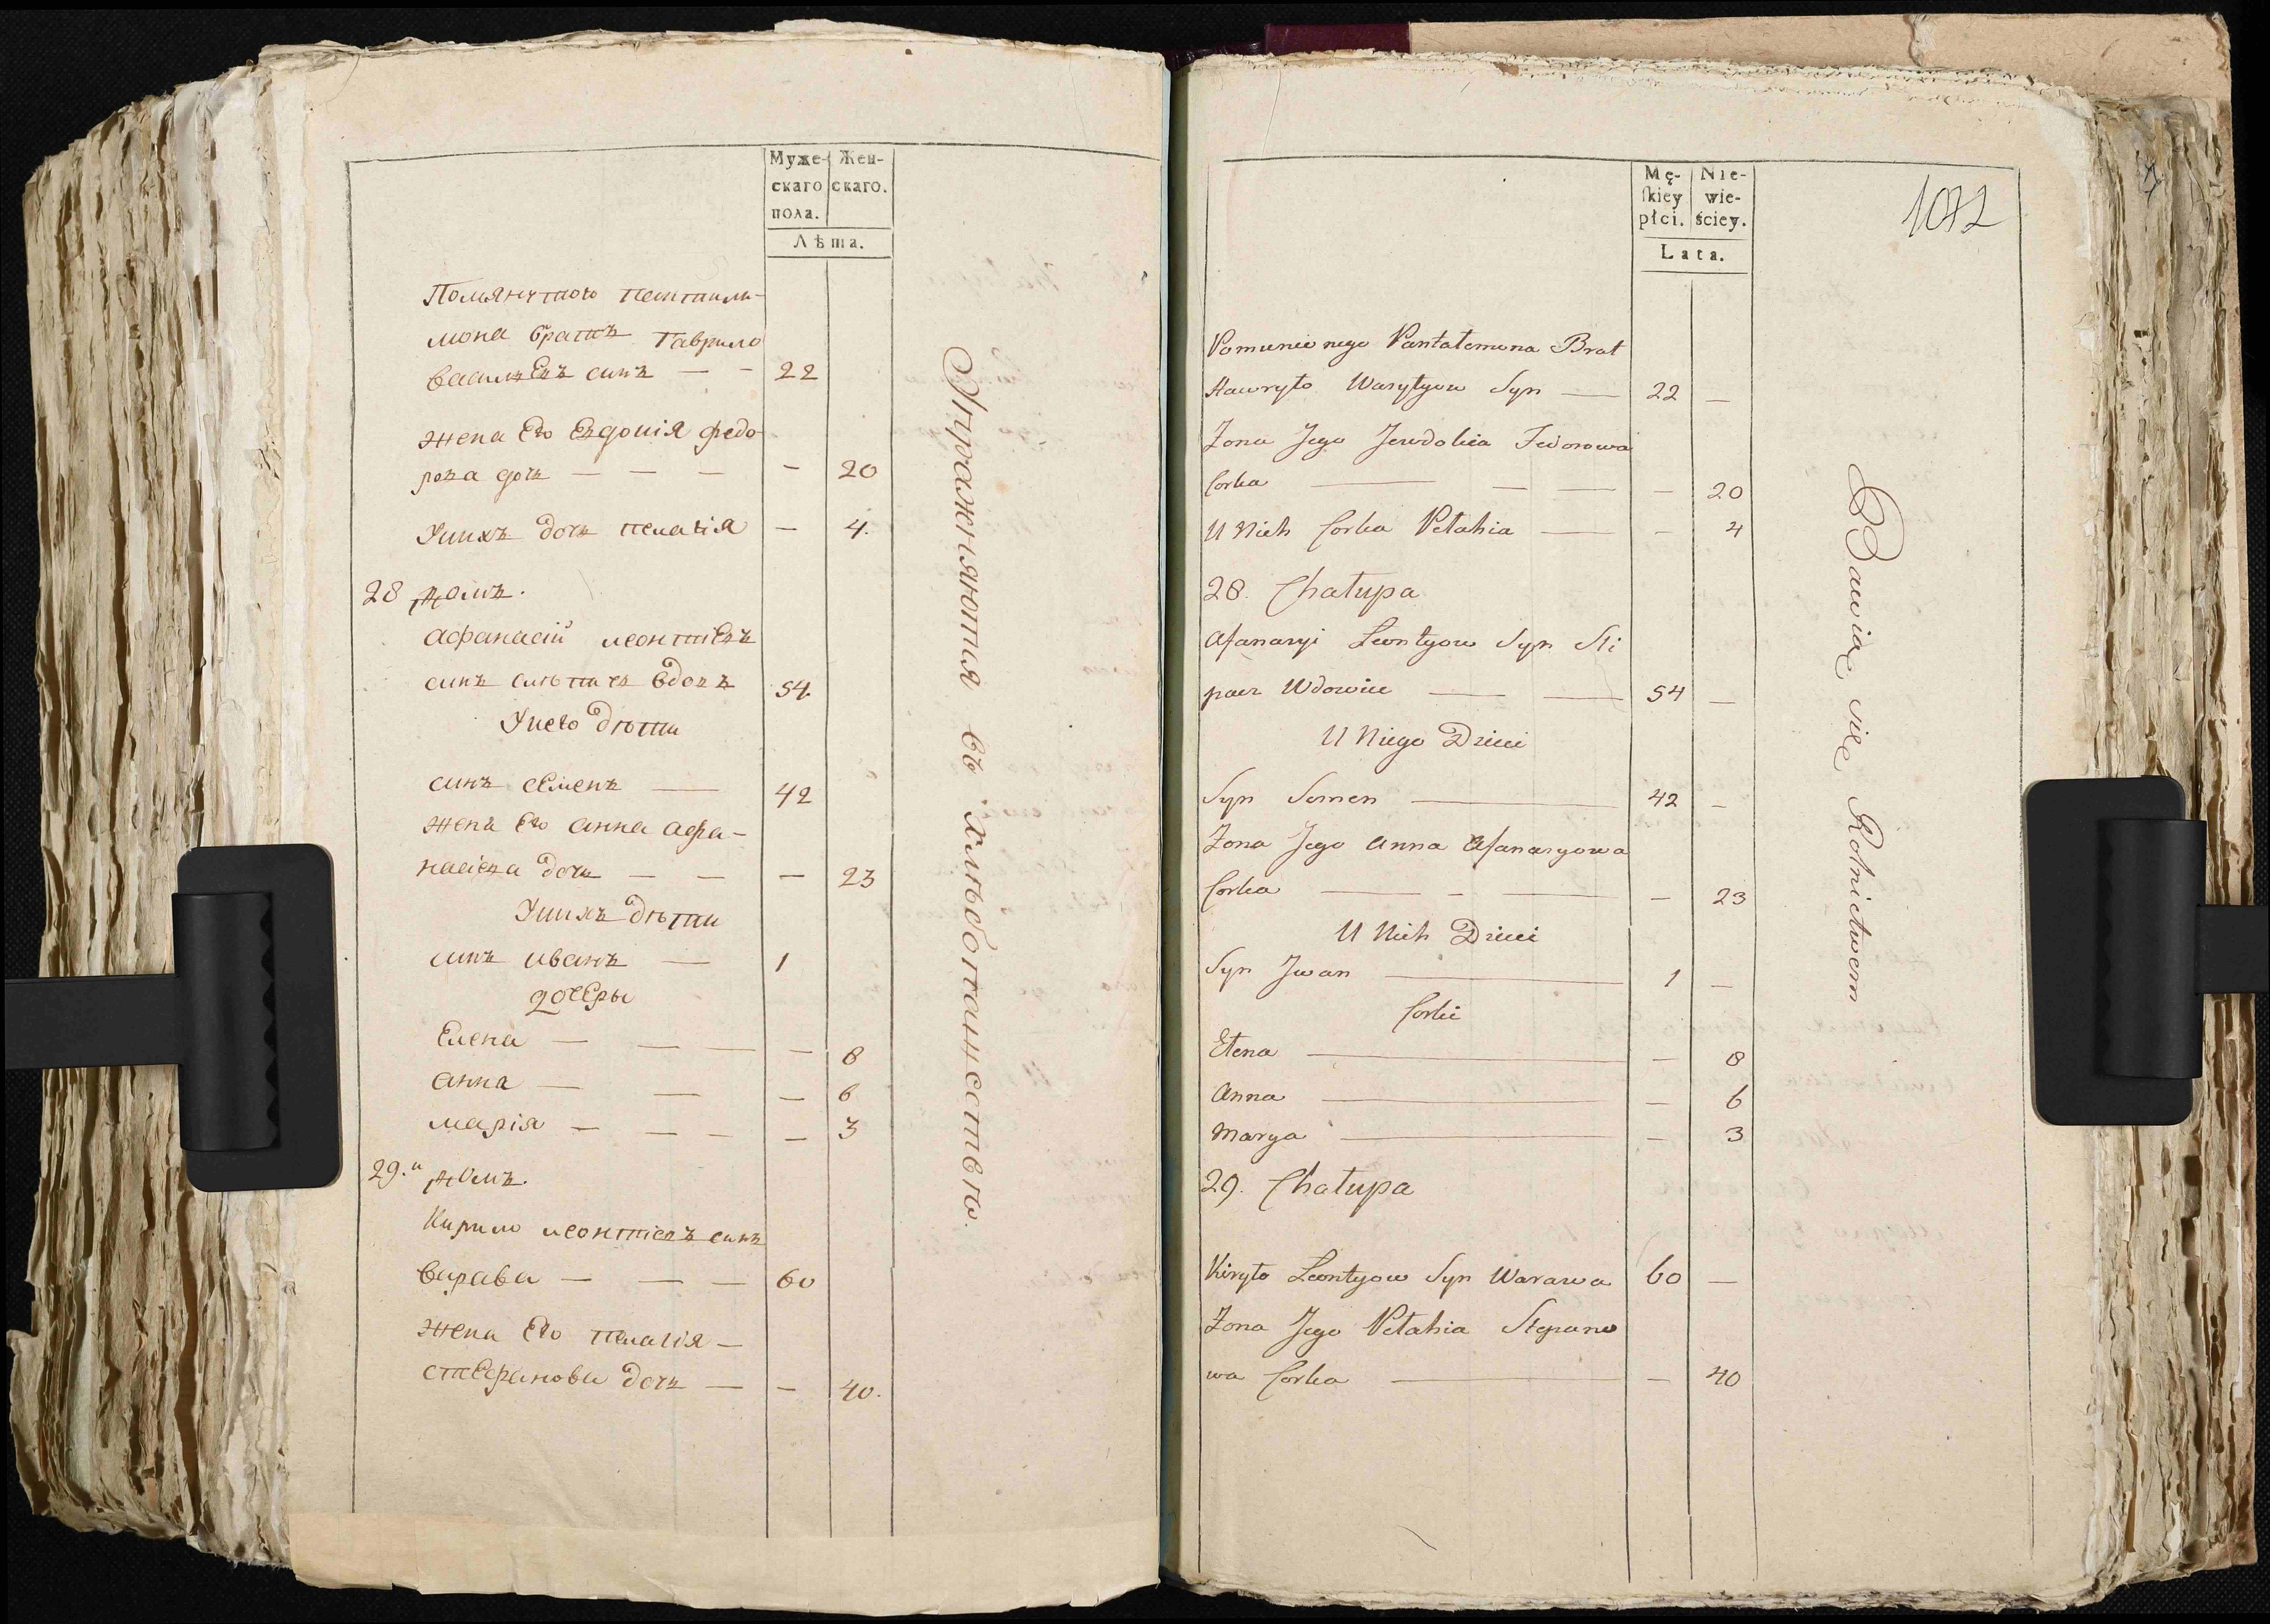 Муже-
скаго
пола.
Жен-
скаго.
Лѣта.
Помянутого пентали-
мона братъ Гаврило
василевъ синъ — — 22
жена его Евдокія федо-
рова дочь — — — — 20
Унихъ дочь пелагія — 4.
28 домъ.
афанасій леонтіевъ
синъ слѣпачъ вдовъ 54.
Унего дѣти
синъ семенъ — 42
жена его анна афа-
насіева дочь — — — 23
Унихъ дѣти
синъ иванъ — 1
дочеры
Елена — — — — 8
анна — — — 6
марія — — — — 3
29.й домъ.
Кирило леонтіевъ синъ
варава — — — 60
жена его пелагія —
стефанова дочь — — 40.
Упражняются въ хлѣбопашествѣ.
1072
Mę-
skiey
płci.
Nie-
wie-
ściey.
Lata.
Pomienionego Pantałemona Brat
Hawryło Wasyłyow Syn — 22 —
Żona Jego Jewdokia Fedorowa
Corka — — — — 20
U Nich Corka Pełahia — — 4
28. Chałupa
Afanasyi Leontyow Syn Sli
pacz Wdowiec — — 54 —
U Niego Dzieci
Syn Semen — 42 —
Żona Jego Anna Afanasyowa
Corka — — — — 23
U Nich Dzieci
Syn Jwan — 1 —
Corki
Ełena — — 8
Anna — — 6
Marya — — 3
29. Chałupa
Kiryło Leontyow Syn Warawa 60 —
Żona Jego Pełahia Stepano
wa Corka — — 40
Bawią się Rolnictwem